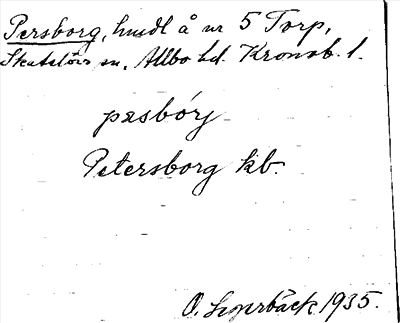 Persborg, hmdl å nr 5 Torp,
Skatelövs sn, Allbo hd. Kronob. l.
pæsbórj
Petersborg kb.
O. 1935.